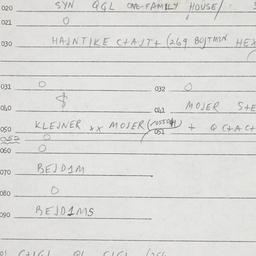 020 SYN QGL ONE-FAMILY HOUSE/
021 O
030 HAJNTIKE C+AJT+ (269 BOJTMIN HEX
031 O 032 O
040 $ 041 MOJER S+E
050 KLEJNER xx MOJER 051 + Q C+AC+
052 O
060 O
070 BEJD1M
080 O
090 BEJD1MS